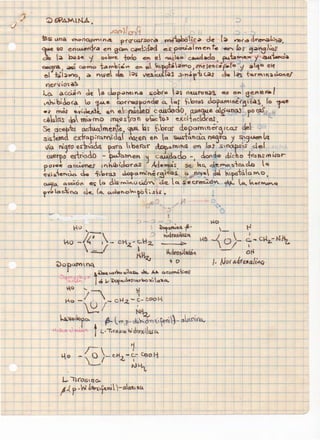 DOPAMINA.
Es una monoamina precursora metabólica de la noradrenalina,
que se encuentra en gran cantidad especialmente en los ganglios
de la base y sobre todo en el núcleo caudado putamen y sustancia
negra, así como también en el hipotálamo, mesencéfalo y algo en
el tálamo, a nivel de las vesículas sinápticas de las terminaciones
nerviosas
La acción de la dopamina sobre las neuronas es en general
inhibidora lo que corresponde a las fibras dopaminérgicas, lo que
es más evidente en el núcleo caudado, aunque algunas pocas
células del mismo muestran efectos excitadores.
Se acepta actualmente, que las fibras dopaminérgicas del
sistema extrapiramidal nacen en la sustancia negra y siguen la
vía nigro estriada para liberar dopamina en las sinapsis del
cuerpo estriado - putamen y caudado -, donde dicho transmisor
posee acciones inhibidoras. Además se ha demostrado la
existencia de fibras dopaminérgicas a nivel del hipotálamo,
cuya acción es la disminución de la secreción de la hormona
prolactina de la adenohipófisis.
HO
HO CH2-CH2
NH2
Dopamina
Dopamina β-
hidroxilasa
HO
HO C-CH2-NH2
H
OH
l. Noradrenalina
HO
HO CH2-C-COOH
H
NH2
Levodopa
β-(m,p-dihidroxifenil)-alanina
L-Tirosina hidroxilasa
HO CH2-C-COOH
H
NH2
L Tirosina
β-(p-hidroxifenil)-alanina